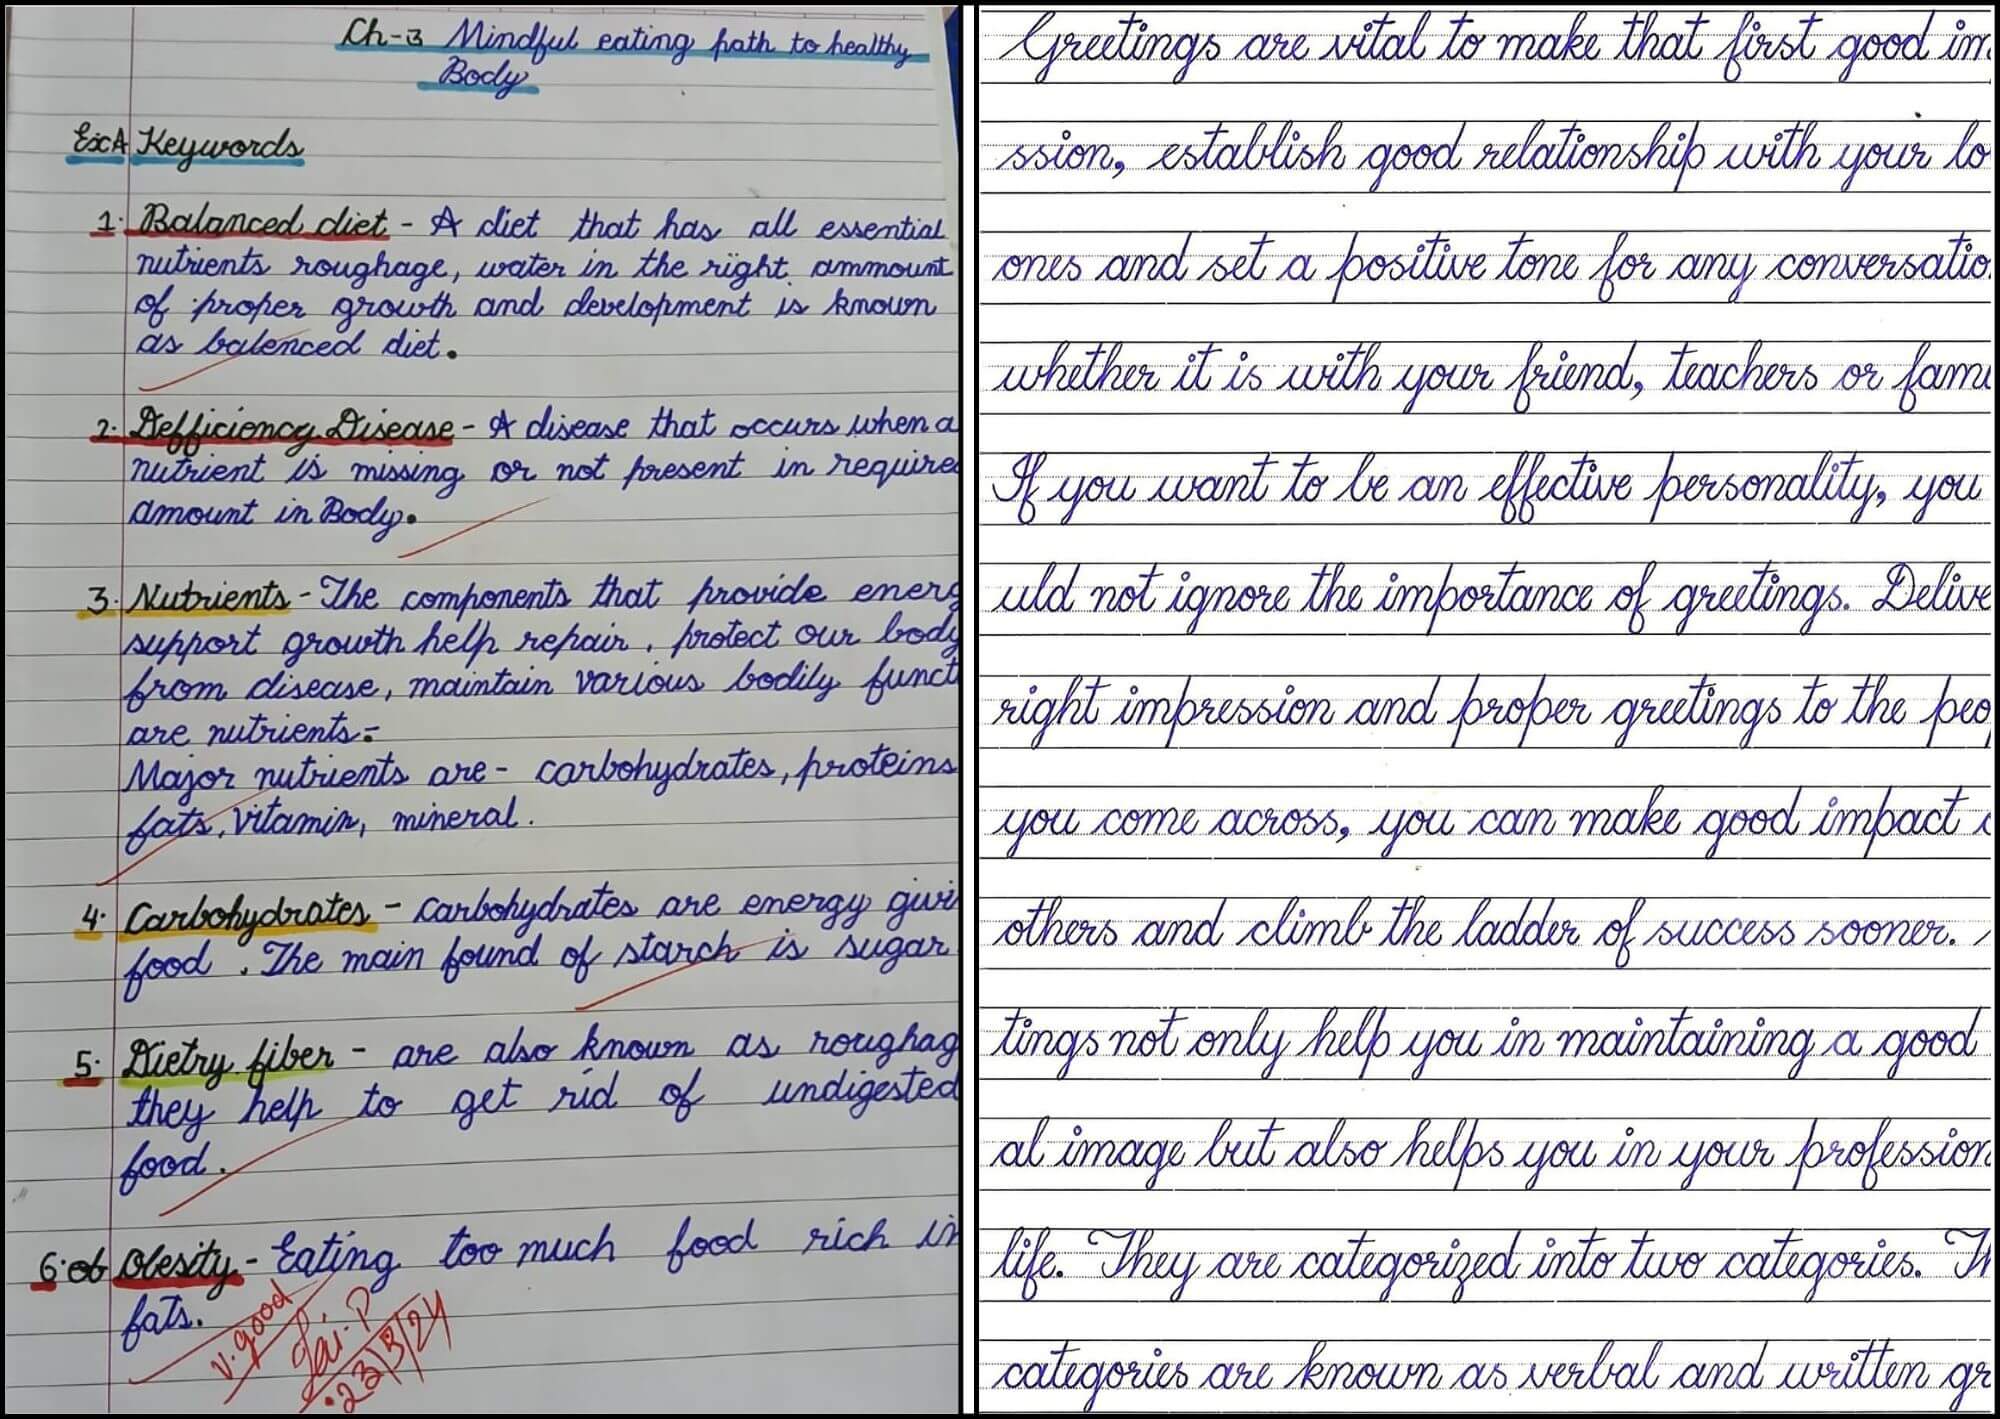 Ch-3 Mindful eating path to healthy
Body
ExA Keywords
1. Balanced diet - A diet that has all essential
nutrients roughage, water in the right ammount
of proper growth and development is known
as balenced diet.
2. Defficiency Disease - A disease that occurs when a
nutrient is missing or not present in require
amount in Body.
3. Nutrients - The components that provide energ
support growth help repair, protect our body
from disease, maintain various bodily funct
are nutrients:-
Major nutrients are - carbohydrates, proteins
fats, vitamin, mineral.
4. Carbohydrates - carbohydrates are energy givi
food. The main found of starch is sugar
5. Dietry fiber - are also known as roughag
they help to get rid of undigested
food.
6. ob Obesity - Eating too much food rich in
fats.
v. good
23/3/24
Greetings are vital to make that first good im
ssion, establish good relationship with your lo
ones and set a positive tone for any conversatio
whether it is with your friend, teachers or fami
If you want to be an effective personality, you
uld not ignore the importance of greetings. Delive
right impression and proper greetings to the peo
you come across, you can make good impact
others and climb the ladder of success sooner.
tings not only help you in maintaining a good
al image but also helps you in your profession
life. They are categorized into two categories. Th
categories are known as verbal and written gr